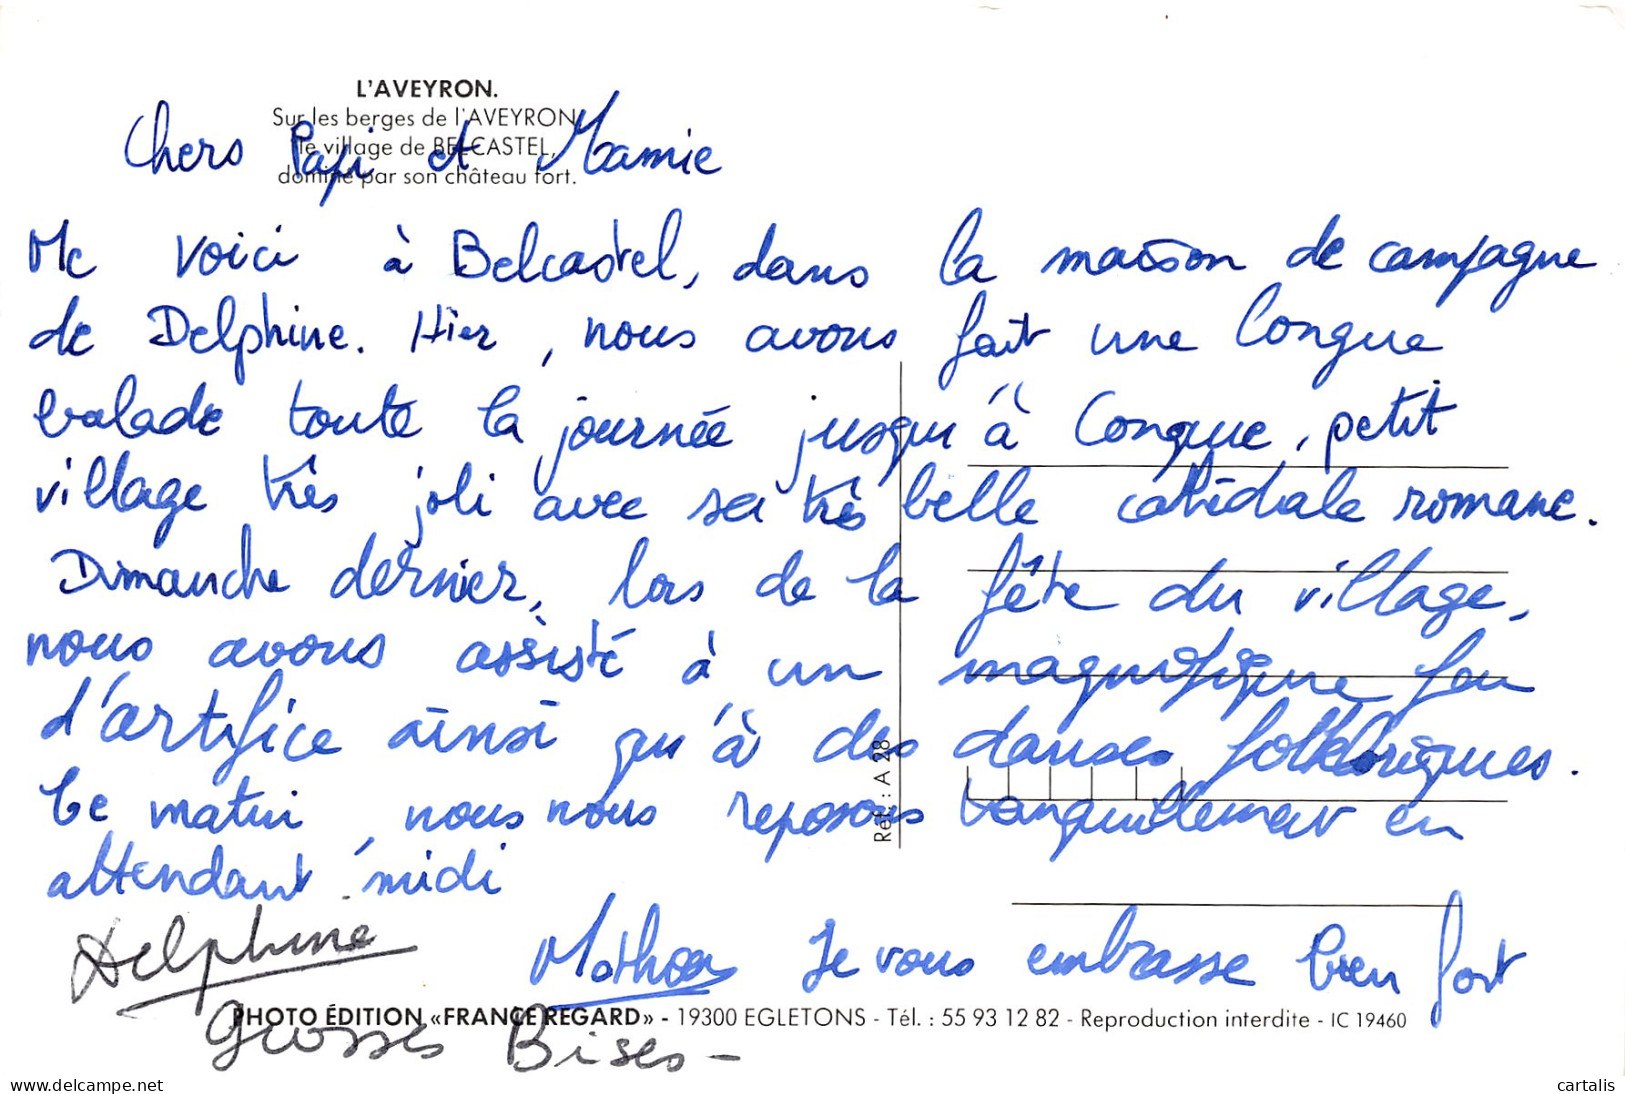 L'AVEYRON.
Sur les berges de l'AVEYRON,
le village de BELCASTEL,
dominé par son château fort.
Chers Papi et Mamie
Me voici à Belcastel, dans la maison de campagne
de Delphine. Hier, nous avons fait une longue
balade toute la journée jusqu'à Conque, petit
village très joli avec sa très belle cathédrale romane.
Dimanche dernier, lors de la fête du village,
nous avons assisté à un magnifique feu
d'artifice ainsi qu'à des danses folkloriques.
Ce matin, nous nous reposons tranquillement en
attendant midi
Delphine
Je vous embrasse bien fort
Grosses Bises -
Réf. : A 28
PHOTO ÉDITION «FRANCE REGARD» - 19300 EGLETONS - Tél. : 55 93 12 82 - Reproduction interdite - IC 19460
www.delcampe.net
cartalis